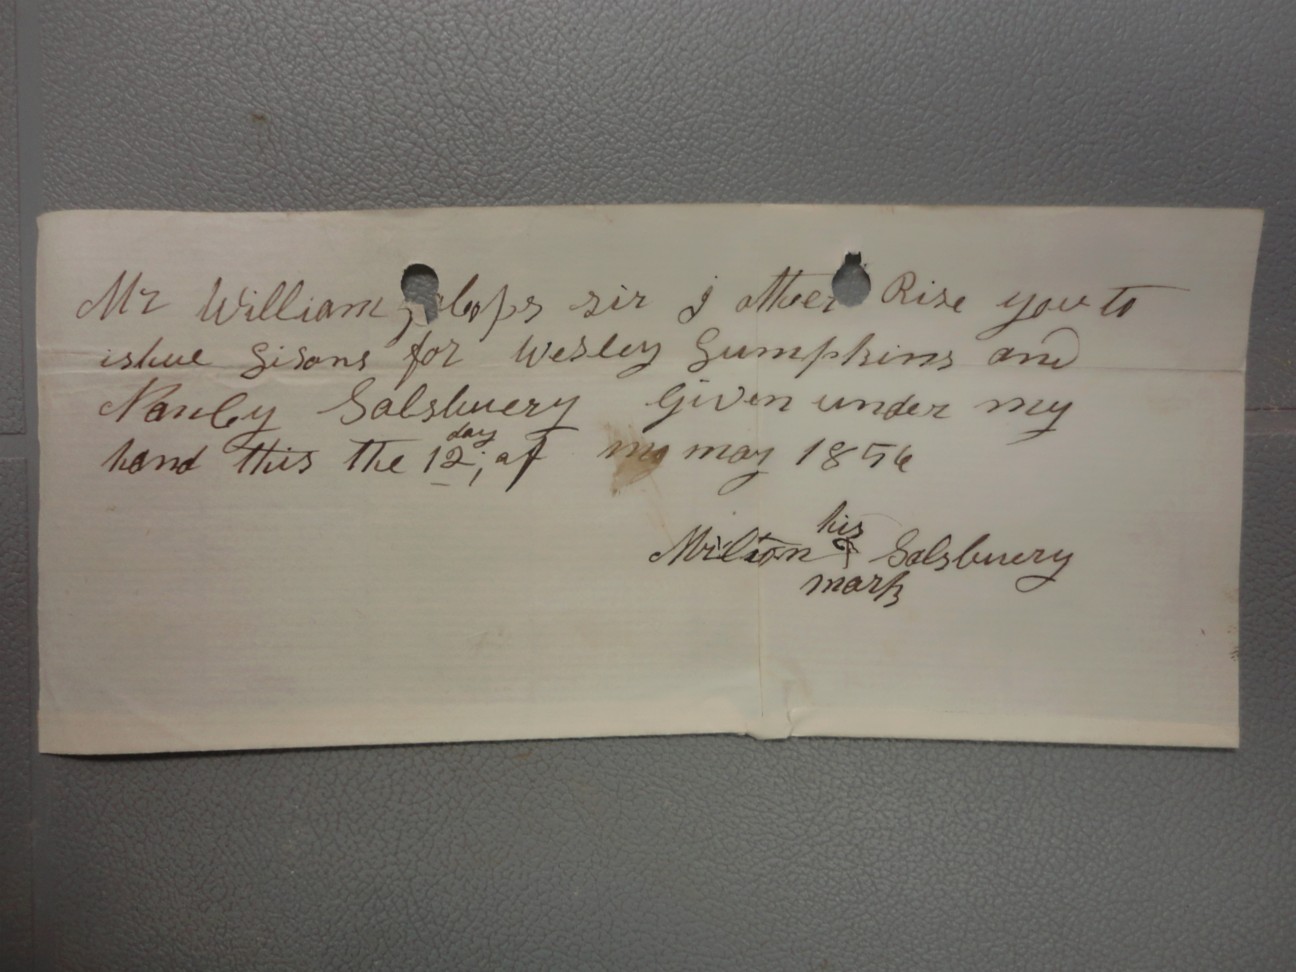 Mr William sir I Rise you to
ishue Sisons for Wesley Gumpkins and
Nancy Salsbuery Given under my
day
hand this the 12, of my may 1856
his
Milton Salsbuery
mark